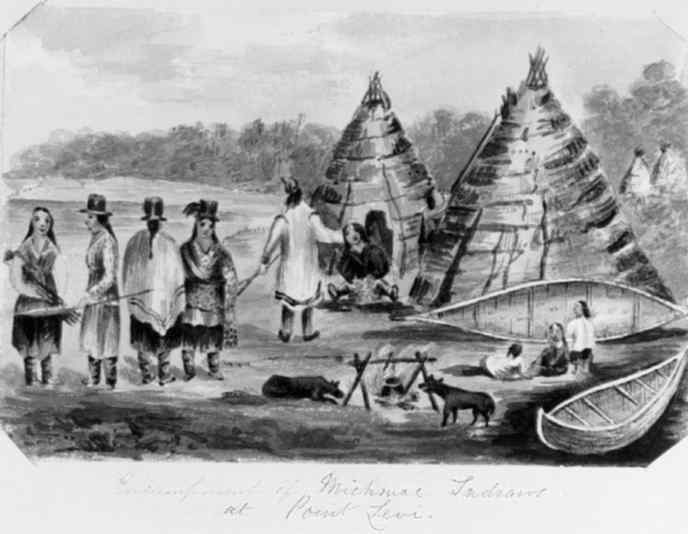 Encampment of Michmac Indians
at Point Levi.